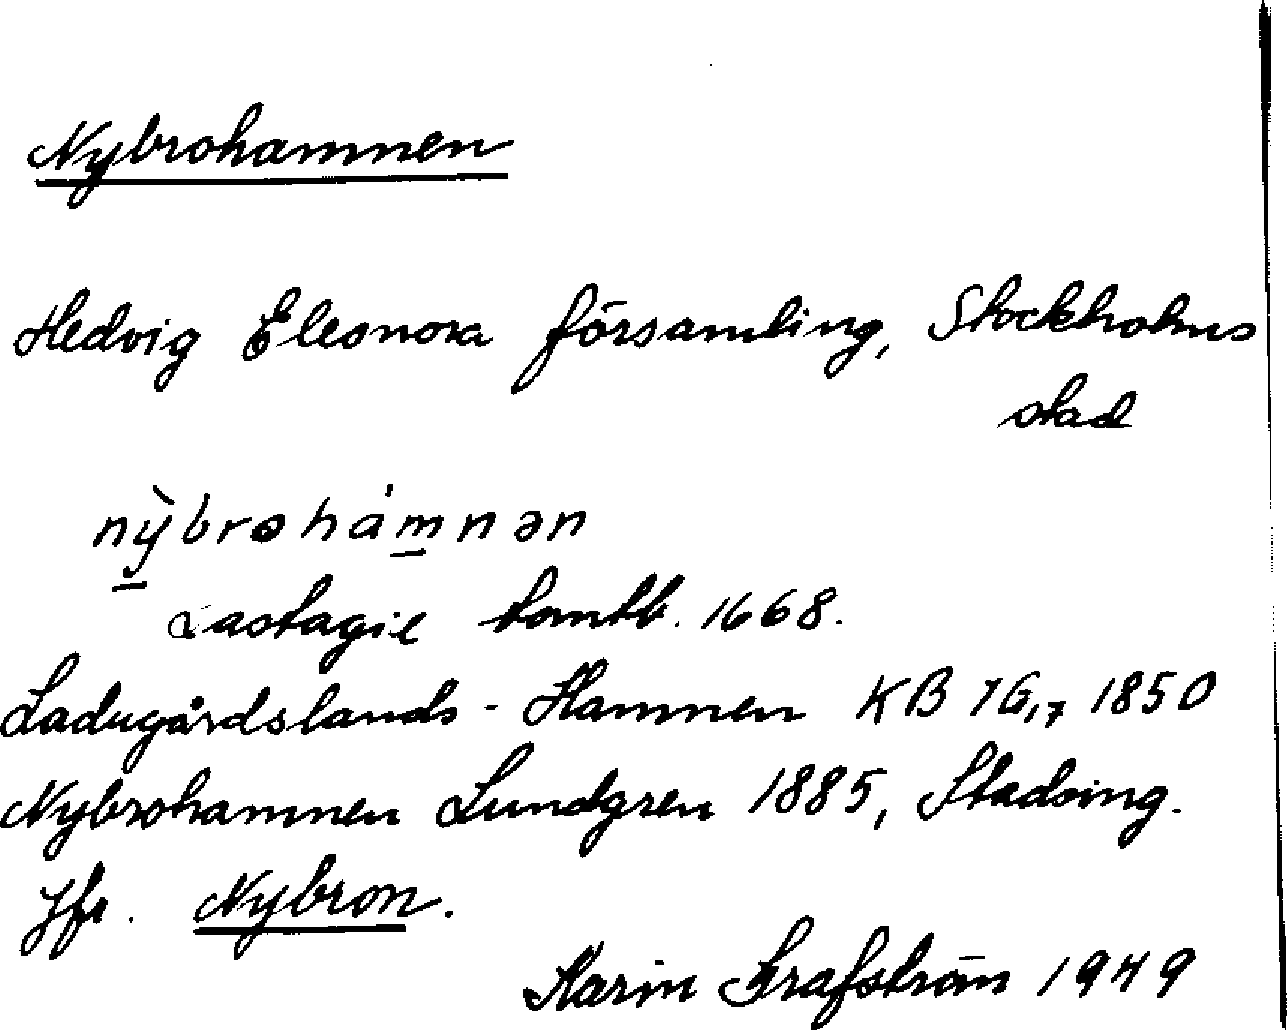 Nybrohamnen
Hedvig Eleonora församling, Stockholms
stad
nỳbrohámnən
Lastagie tomtb. 1668.
Ladugårdslands-Hamnen KB 1G,7 1850
Nybrohamnen Lundgren 1885, Stadsing.
Jfr. Nybron.
Karin Grafström 1949